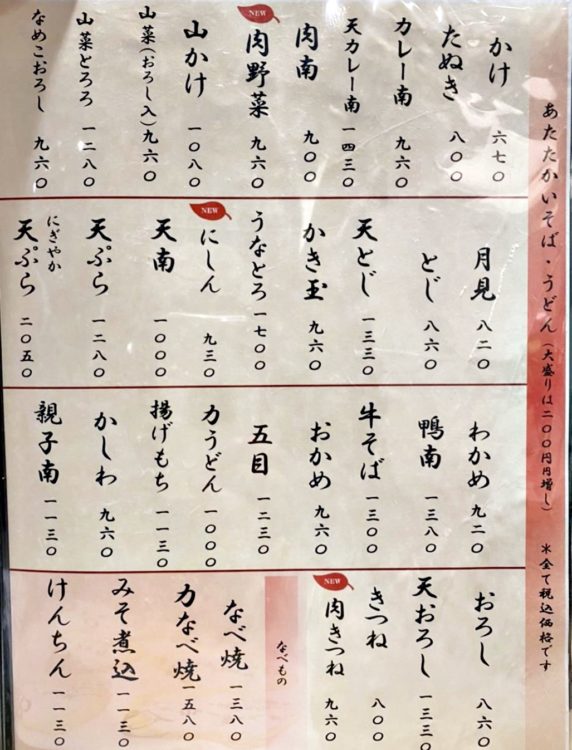 あたたかいそば・うどん（大盛りは二〇〇円円増し）　＊全て税込価格です
かけ　六七〇
たぬき　八〇〇
カレー南　九六〇
天カレー南　一四三〇
肉南　九〇〇
NEW
肉野菜　九六〇
山かけ　一〇八〇
山菜（おろし入）九六〇
山菜とろろ　一二八〇
なめこおろし　九六〇
月見　八二〇
とじ　八六〇
天とじ　一三三〇
かき玉　九六〇
うなとろ　一七〇〇
NEW
にしん　九三〇
天南　一〇〇〇
天ぷら　一二八〇
にぎやか
天ぷら　二〇五〇
わかめ　九二〇
鴨南　一三八〇
牛そば　一三〇〇
おかめ　九六〇
五目　一二三〇
力うどん　一〇〇〇
揚げもち　一一三〇
かしわ　九六〇
親子南　一一三〇
おろし　八六〇
天おろし　一三三〇
きつね　八〇〇
NEW
肉きつね　九六〇
なべもの
なべ焼　一三八〇
力なべ焼　一五八〇
みそ煮込　一一三〇
けんちん　一一三〇